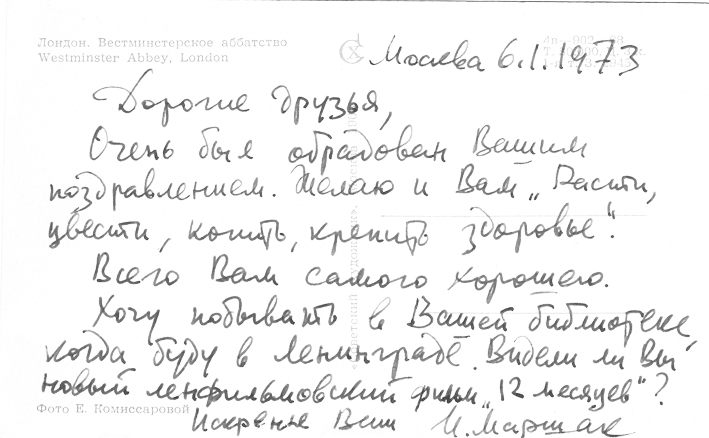 Лондон. Вестминстерское аббатство
Westminster Abbey, London
Москва 6.I.1973
Дорогие друзья,
Очень был обрадован Вашим
поздравлением. Желаю и Вам „Расти,
цвести, копить, крепить здоровье".
Всего Вам самого хорошего.
Хочу побывать в Вашей библиотеке,
когда буду в Ленинграде. Видели ли Вы
новый ленфильмовский фильм „12 месяцев"?
Фото Е. Комиссаровой
Искренне Ваш И. Маршак